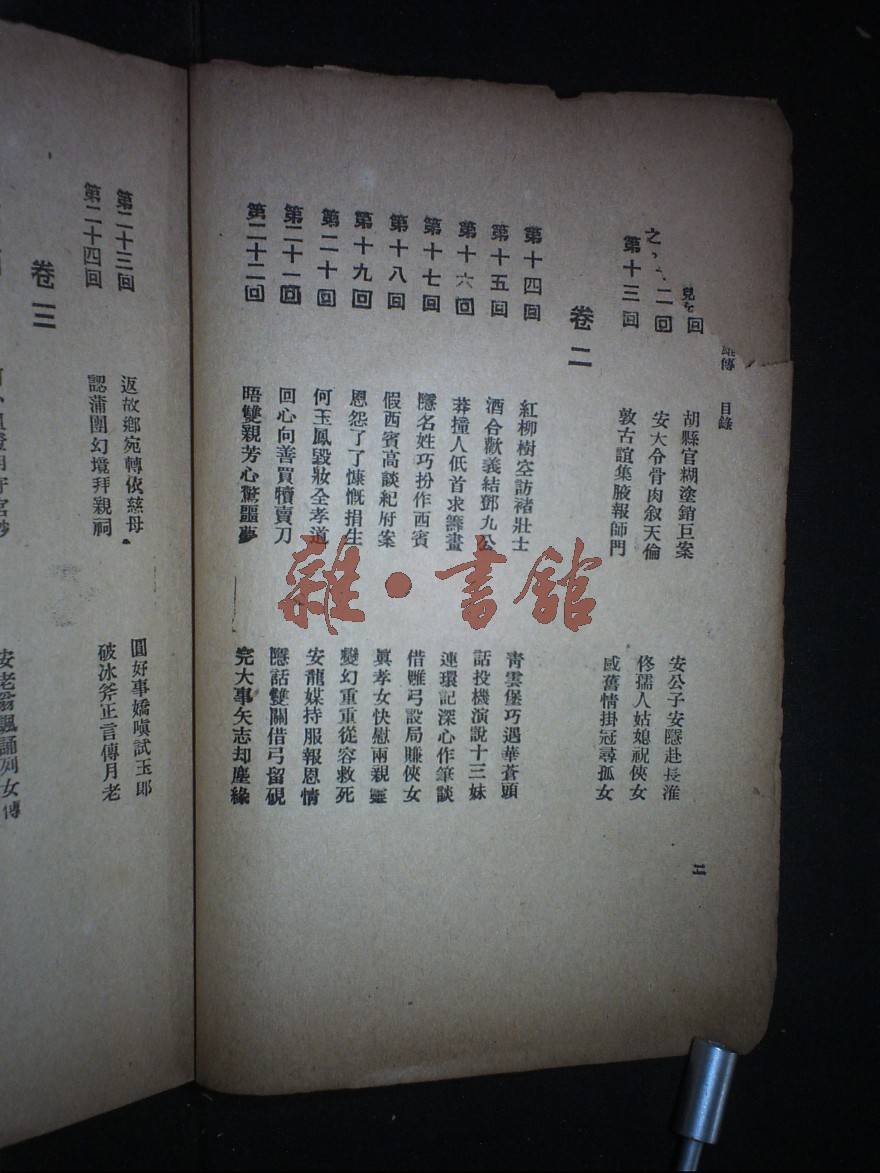 雄傳 目錄
回 胡縣官糊塗銷巨案 安公子安隱赴長淮
二回 安大令骨肉敘天倫 佟孺人姑媳祝俠女
第十三回 敦古誼集腋報師門 感舊情掛冠尋孤女
卷二
第十四回 紅柳樹空訪褚壯士 青雲堡巧遇華蒼頭
第十五回 酒合歡義結鄧九公 話投機演說十三妹
第十六回 莽撞人低首求籌畫 連環記深心作筆談
第十七回 隱名姓巧扮作西賓 借雕弓設局賺俠女
第十八回 假西賓高談紀府案 眞孝女快慰兩親靈
第十九回 恩怨了了慷慨捐生 變幻重重從容救死
第二十回 何玉鳳毀妝全孝道 安龍媒持服報恩情
第二十一回 回心向善買犢賣刀 隱話雙關借弓留硯
第二十二回 晤雙親芳心驚噩夢 完大事矢志却塵緣
二
第二十三回 返故鄉宛轉依慈母 圓好事嬌嗔試玉郎
第二十四回 認蒲團幻境拜親祠 破冰斧正言傳月老
卷三
安老翁飄誦列女傳
雜·書館